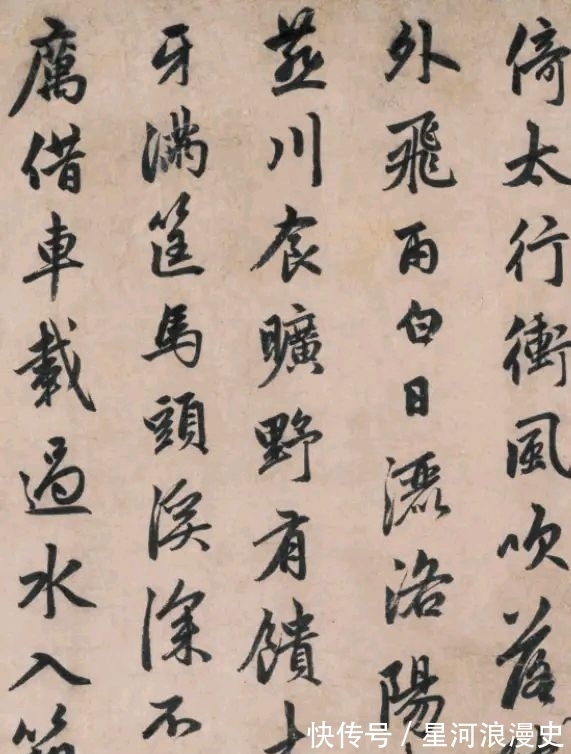 倚太行衝風吹落
外飛雨白日灑洛陽
燕川食曠野有饋
牙滿筐馬頭溪深不
厲借車載過水入箱
快传号/星河浪漫史